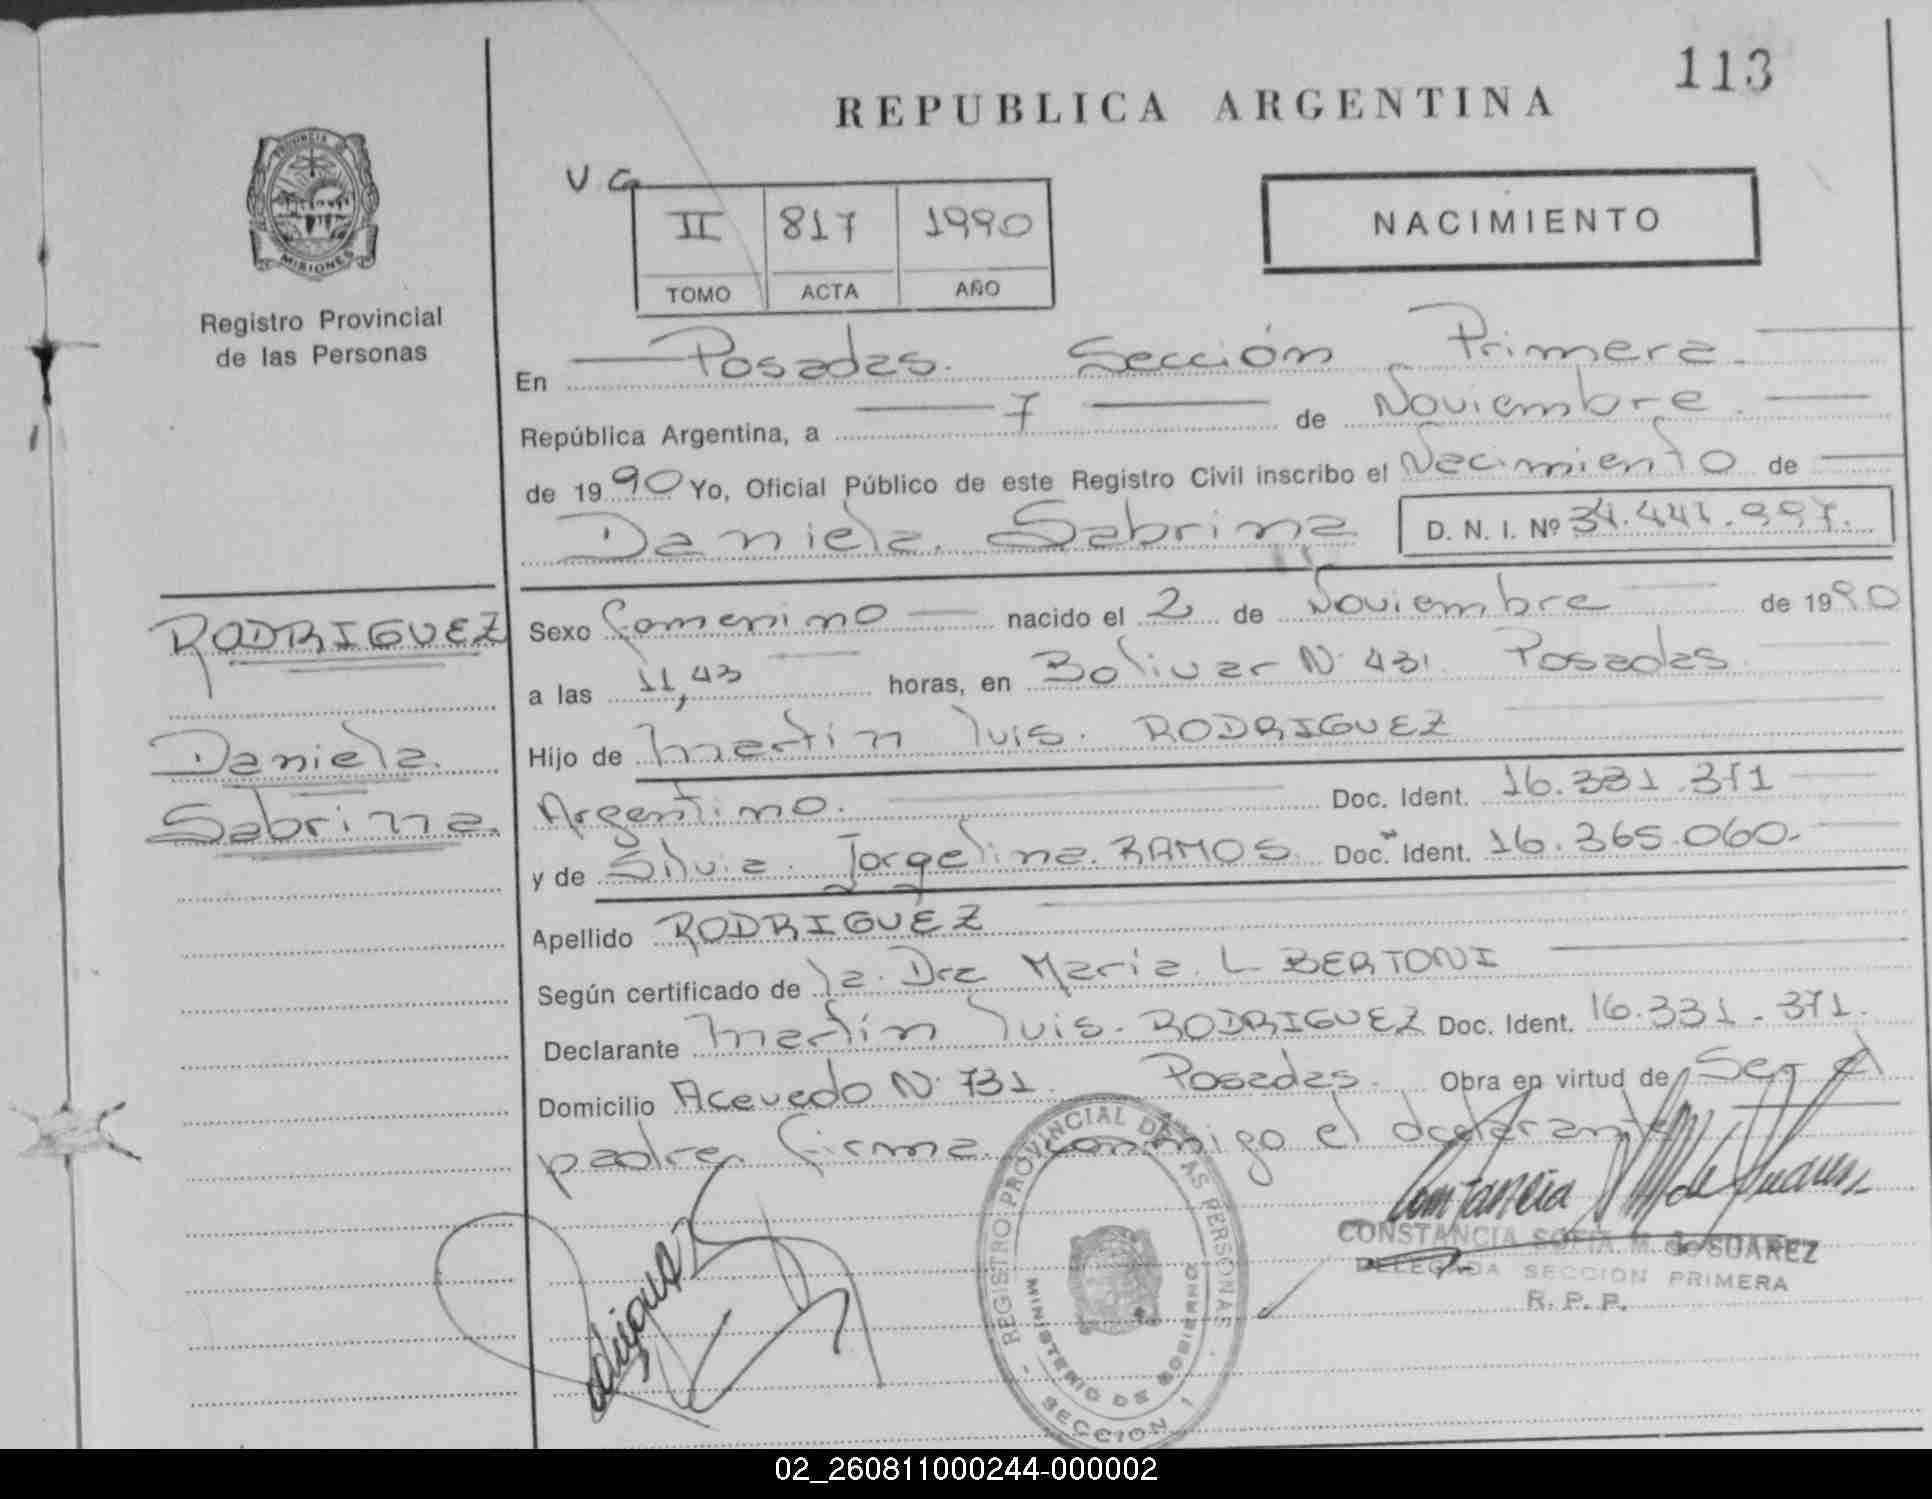 113
REPUBLICA ARGENTINA
V G
II 817 1990
TOMO ACTA AÑO
NACIMIENTO
PROVINCIA DE
MISIONES
Registro Provincial
de las Personas
En Posadas. Sección Primera.
República Argentina, a 7 de Noviembre.
de 1990 Yo, Oficial Público de este Registro Civil inscribo el Nacimiento de
Daniela. Sabrina D. N. I. Nº
RODRIGUEZ
Daniela.
Sabrina.
Sexo femenino nacido el 2 de Noviembre de 1990
a las 11,43 horas, en Bolivar N· 431. Posadas.
Hijo de Martin luis. RODRIGUEZ
Argentino. Doc. Ident. 16.331.371
y de Silvia. Jorgelina. RAMOS. Doc. Ident. 16.365.060-
Apellido RODRIGUEZ
Según certificado de la. Dra Maria. L BERTONI
Declarante Martin luis. RODRIGUEZ Doc. Ident. 16.331-371.
Domicilio Acevedo N· 731. Posadas. Obra en virtud de Ser el
padre. firma conmigo el declarante
Rodriguez
REGISTRO PROVINCIAL DE LAS PERSONAS
MINISTERIO DE GOBIERNO
SECCION 1
Constancia M de Suarez
CONSTANCIA SOFIA M. de SUAREZ
DELEGADA SECCION PRIMERA
R. P. P.
02_260811000244-000002